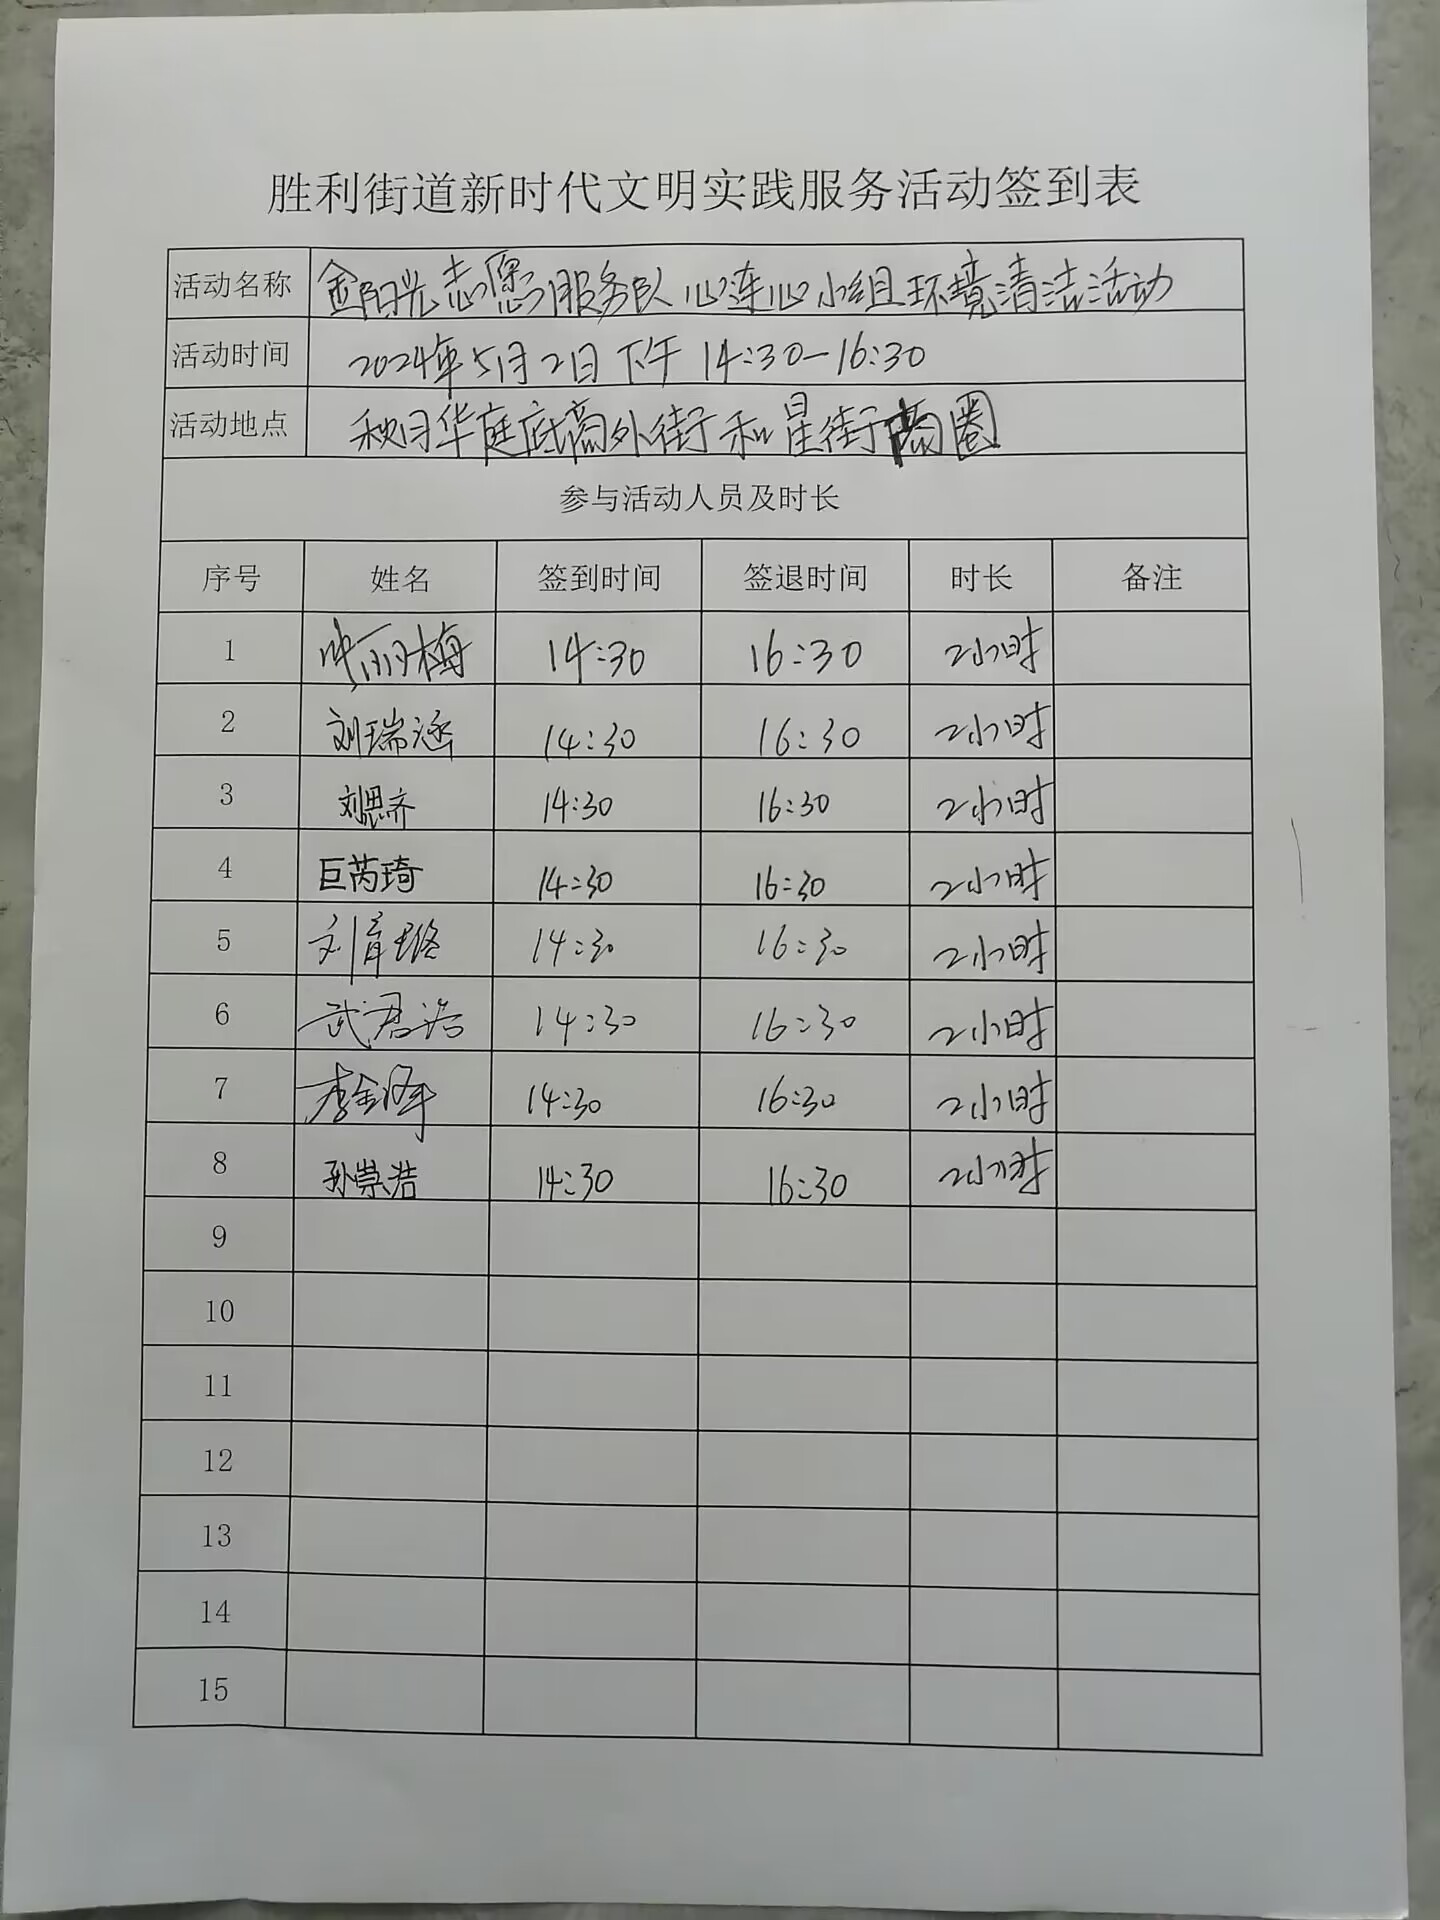 胜利街道新时代文明实践服务活动签到表
活动名称 金阳光志愿服务队心连心小组环境清洁活动
活动时间 2024年5月2日下午 14:30-16:30
活动地点 秋月华庭底商外街和星街商圈
参与活动人员及时长
序号 姓名 签到时间 签退时间 时长 备注
1 叶丽梅 14:30 16:30 2小时
2 刘瑞涵 14:30 16:30 2小时
3 刘思齐 14:30 16:30 2小时
4 巨芮琦 14:30 16:30 2小时
5 刘 14:30 16:30 2小时
6 武君浩 14:30 16:30 2小时
7 李金泽 14:30 16:30 2小时
8 孙崇浩 14:30 16:30 2小时
9
10
11
12
13
14
15